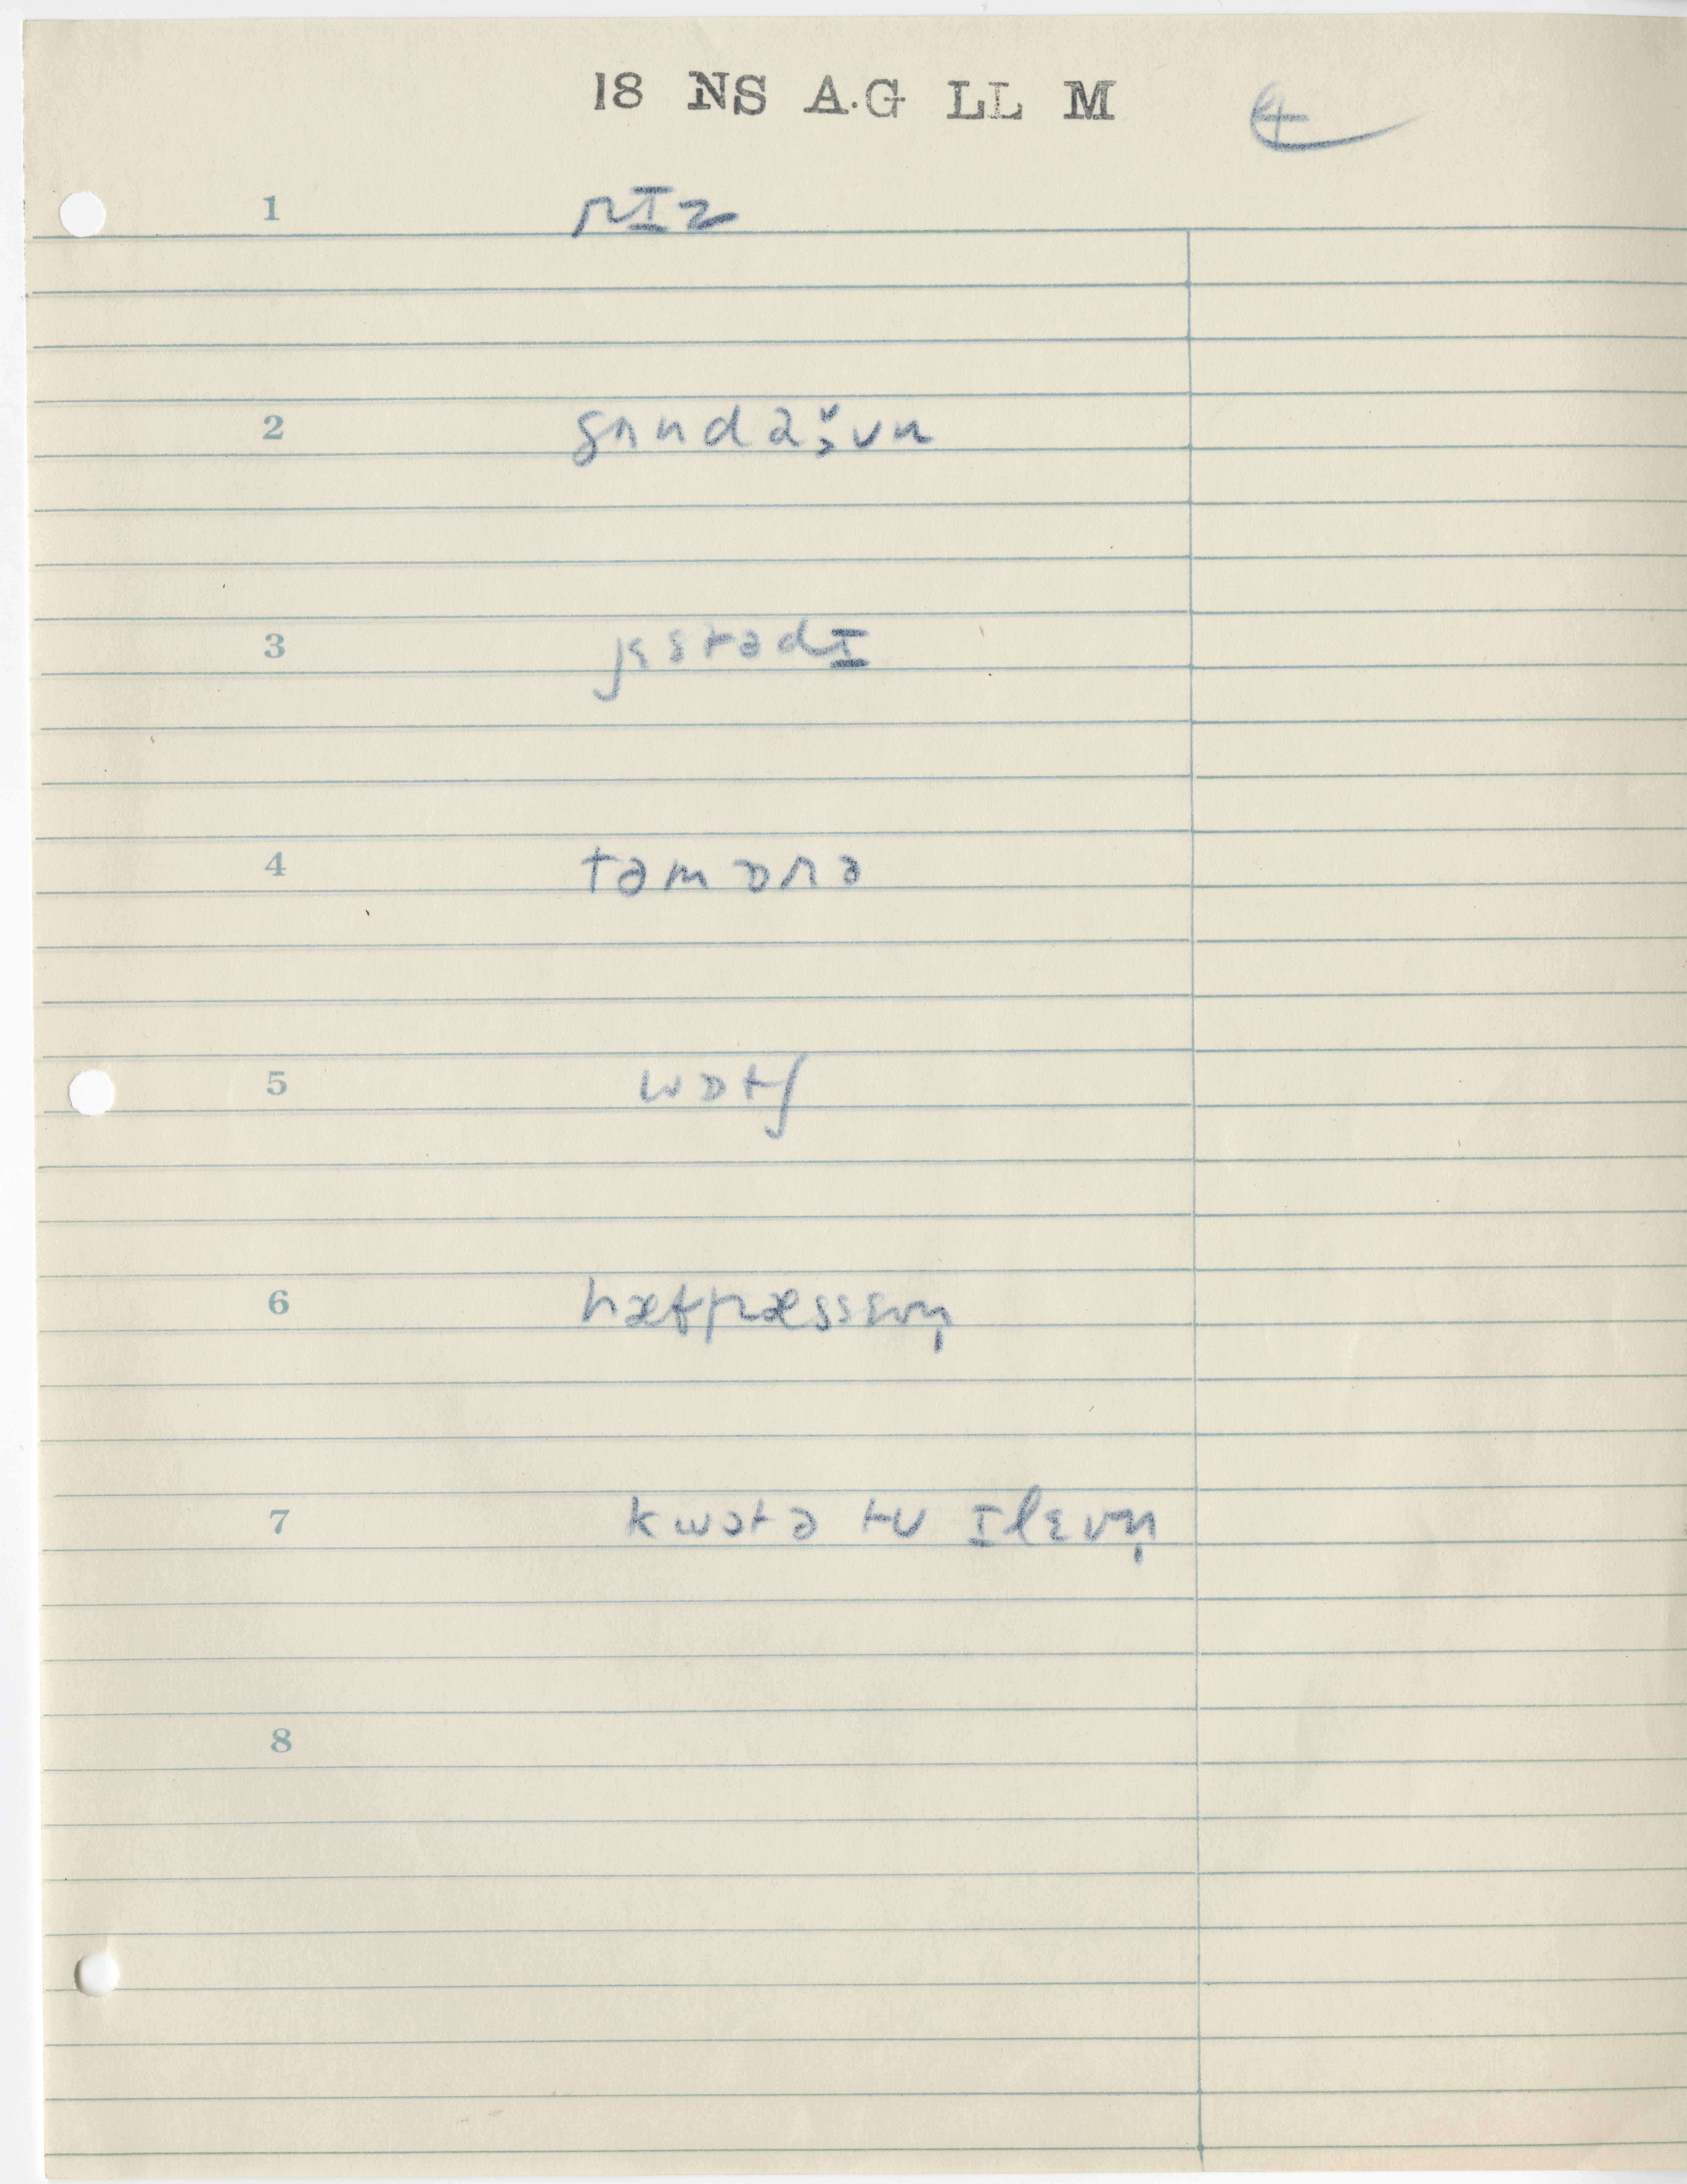 18 NS A.G LL M 4
1 rɪz
2
3 jɛstədɪ
4 təmɒrə
5 wɒtʃ
6
7 kwɔtə tʊ ɪlɛvn̩
8